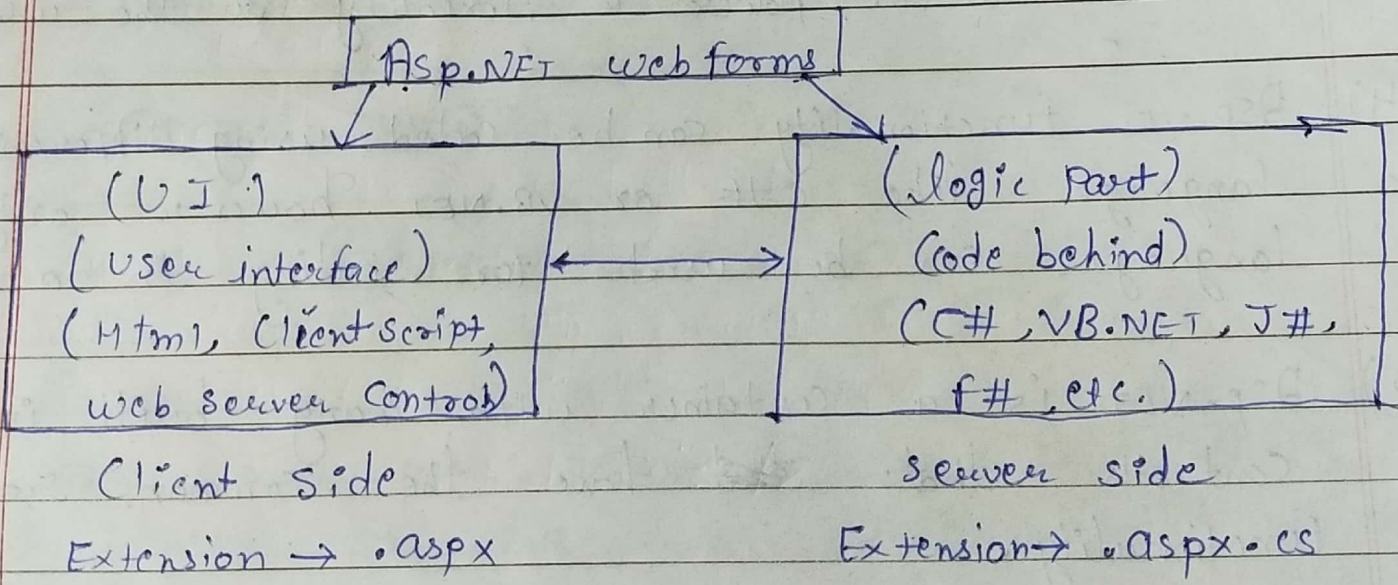 Asp.NET web forms
(U I.)
(user interface)
(Html, Client script,
web server Control)
Client side
Extension → .aspx
(logic Part)
(Code behind)
(C#, VB.NET, J#,
f#, etc.)
server side
Extension→ .aspx.cs